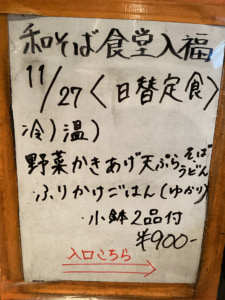 和そば食堂入福
11/27〈日替定食〉
冷)温)
野菜かきあげ天ぷらそばうどん
・ふりかけごはん(ゆかり)
・小鉢2品付
¥900-
入口こちら